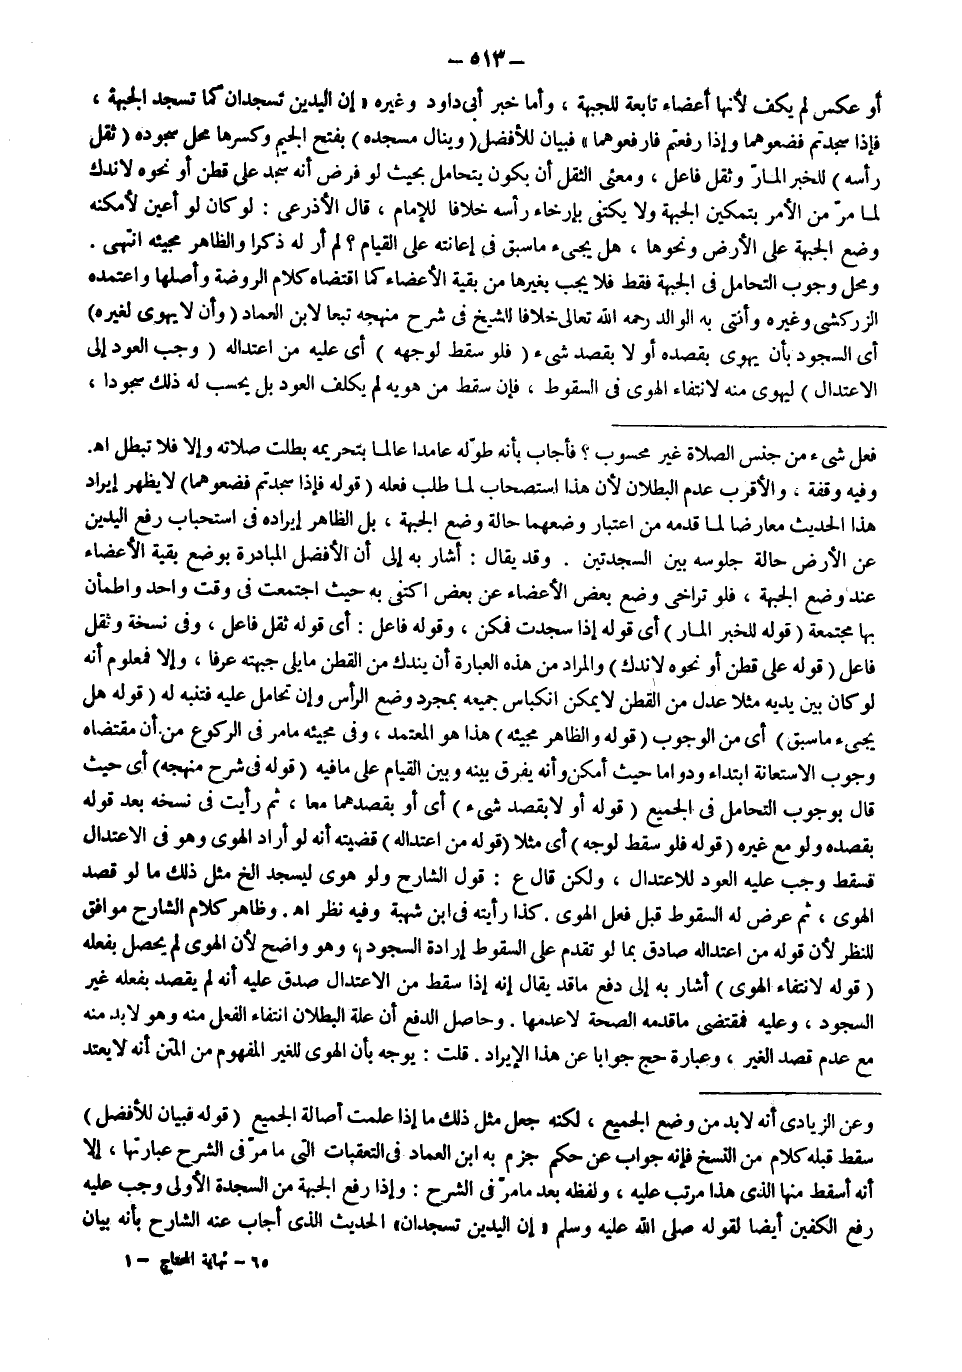 — ٥١٣ —
أو عكس لم يكف لأنها أعضاء تابعة للجبهة ، وأما خبر أبى داود وغيره « إن اليدين تسجدان كما تسجد الجبهة ،
فإذا سجدتم فضعوهما وإذا رفعتم فارفعوهما » فبيان للأفضل ( وينال مسجده ) بفتح الجيم وكسرها محل سجوده ( ثقل
رأسه ) للخبر المارّ وثقل فاعل ، ومعنى الثقل أن يكون يتحامل بحيث لو فرض أنه سجد على قطن أو نحوه لاندك
لما مرّ من الأمر بتمكين الجبهة ولا يكتفى بإرخاء رأسه خلافا للإمام ، قال الأذرعى : لو كان لو أعين لأمكنه
وضع الجبهة على الأرض ونحوها ، هل يجىء ماسبق فى إعانته على القيام ؟ لم أر له ذكرا والظاهر مجيئه انتهى .
ومحل وجوب التحامل فى الجبهة فقط فلا يجب بغيرها من بقية الأعضاء كما اقتضاه كلام الروضة وأصلها واعتمده
الزركشى وغيره وأفتى به الوالد رحمه الله تعالى خلافا للشيخ فى شرح منهجه تبعا لابن العماد ( وأن لا يهوى لغيره )
أى السجود بأن يهوى بقصده أو لا بقصد شىء ( فلو سقط لوجهه ) أى عليه من اعتداله ( وجب العود إلى
الاعتدال ) ليهوى منه لانتفاء الهوى فى السقوط ، فإن سقط من هويه لم يكلف العود بل يحسب له ذلك سجودا ،
فعل شىء من جنس الصلاة غير محسوب ؟ فأجاب بأنه طوّله عامدا عالما بتحريمه بطلت صلاته وإلا فلا تبطل اهـ.
وفيه وقفة ، والأقرب عدم البطلان لأن هذا استصحاب لما طلب فعله ( قوله فإذا سجدتم فضعوهما ) لايظهر إيراد
هذا الحديث معارضا لما قدمه من اعتبار وضعهما حالة وضع الجبهة ، بل الظاهر إيراده فى استحباب رفع اليدين
عن الأرض حالة جلوسه بين السجدتين . وقد يقال : أشار به إلى أن الأفضل المبادرة بوضع بقية الأعضاء
عند وضع الجبهة ، فلو تراخى وضع بعض الأعضاء عن بعض اكتفى به حيث اجتمعت فى وقت واحد واطمأن
بها مجتمعة ( قوله للخبر المار ) أى قوله إذا سجدت فمكن ، وقوله فاعل : أى قوله ثقل فاعل ، وفى نسخة وثقل
فاعل ( قوله على قطن أو نحوه لاندك ) والمراد من هذه العبارة أن يندك من القطن مايلى جبهته عرفا ، وإلا فمعلوم أنه
لو كان بين يديه مثلا عدل من القطن لايمكن انكباس جميعه بمجرد وضع الرأس وإن تحامل عليه فتنبه له ( قوله هل
يجىء ماسبق ) أى من الوجوب ( قوله والظاهر مجيئه ) هذا هو المعتمد ، وفى مجيئه مامر فى الركوع من أن مقتضاه
وجوب الاستعانة ابتداء ودواما حيث أمكن وأنه يفرق بينه وبين القيام على مافيه ( قوله فى شرح منهجه ) أى حيث
قال بوجوب التحامل فى الجميع ( قوله أو لابقصد شىء ) أى أو بقصدهما معا ، ثم رأيت فى نسخه بعد قوله
بقصده ولو مع غيره ( قوله فلو سقط لوجه ) أى مثلا ( قوله من اعتداله ) قضيته أنه لو أراد الهوى وهو فى الاعتدال
فسقط وجب عليه العود للاعتدال ، ولكن قال ع : قول الشارح ولو هوى ليسجد الخ مثل ذلك ما لو قصد
الهوى ، ثم عرض له السقوط قبل فعل الهوى . كذا رأيته فى ابن شهبة وفيه نظر اهـ. وظاهر كلام الشارح موافق
للنظر لأن قوله من اعتداله صادق بما لو تقدم على السقوط إرادة السجود ، وهو واضح لأن الهوى لم يحصل بفعله
( قوله لانتفاء الهوى ) أشار به إلى دفع ماقد يقال إنه إذا سقط من الاعتدال صدق عليه أنه لم يقصد بفعله غير
السجود ، وعليه فمقتضى ماقدمه الصحة لاعدمها . وحاصل الدفع أن علة البطلان انتفاء الفعل منه وهو لابد منه
مع عدم قصد الغير ، وعبارة حج جوابا عن هذا الإيراد . قلت : يوجه بأن الهوى للغير المفهوم من المتن أنه لايعتد
وعن الزيادى أنه لابد من وضع الجميع ، لكنه جعل مثل ذلك ما إذا علمت أصالة الجميع ( قوله فبيان للأفضل )
سقط قبله كلام من النسخ فإنه جواب عن حكم جزم به ابن العماد فى التعقبات التى مامرّ فى الشرح عبارتها ، إلا
أنه أسقط منها الذى هذا مرتب عليه ، ولفظه بعد مامرّ فى الشرح : وإذا رفع الجبهة من السجدة الأولى وجب عليه
رفع الكفين أيضا لقوله صلى الله عليه وسلم « إن اليدين تسجدان » الحديث الذى أجاب عنه الشارح بأنه بيان
٦٥ – نهاية المحتاج – ١